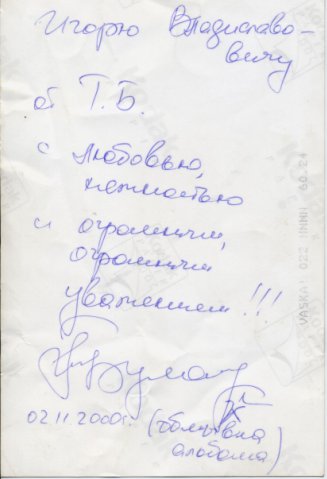 Игорю Владиславо-
вичу
от Т.Б.
с любовью,
нежностью
и огромным,
огромным
уважением!!!
02.11.2000г.
(обложка
альбома)
VASKA! 022 NNNN 60.24